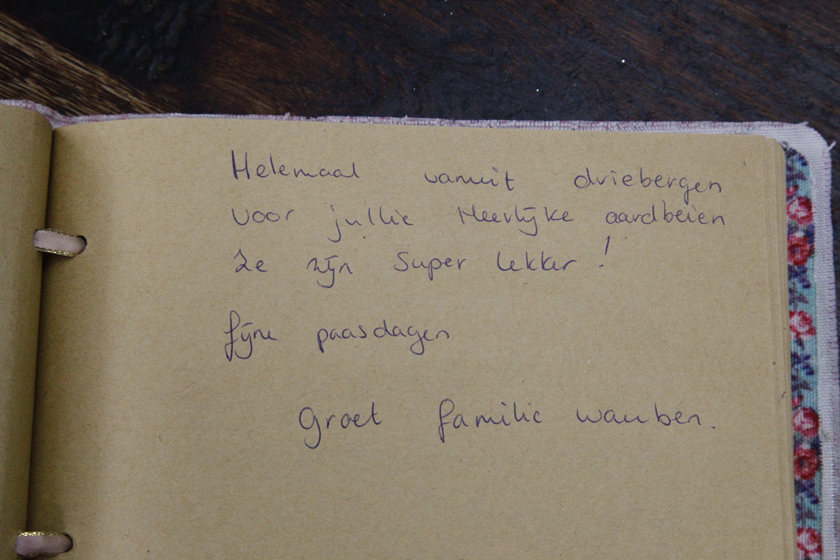 Helemaal vanuit driebergen
voor jullie Heerlijke aardbeien
Ze zijn Super lekker !
fijne paasdagen
Groet familie wauben.